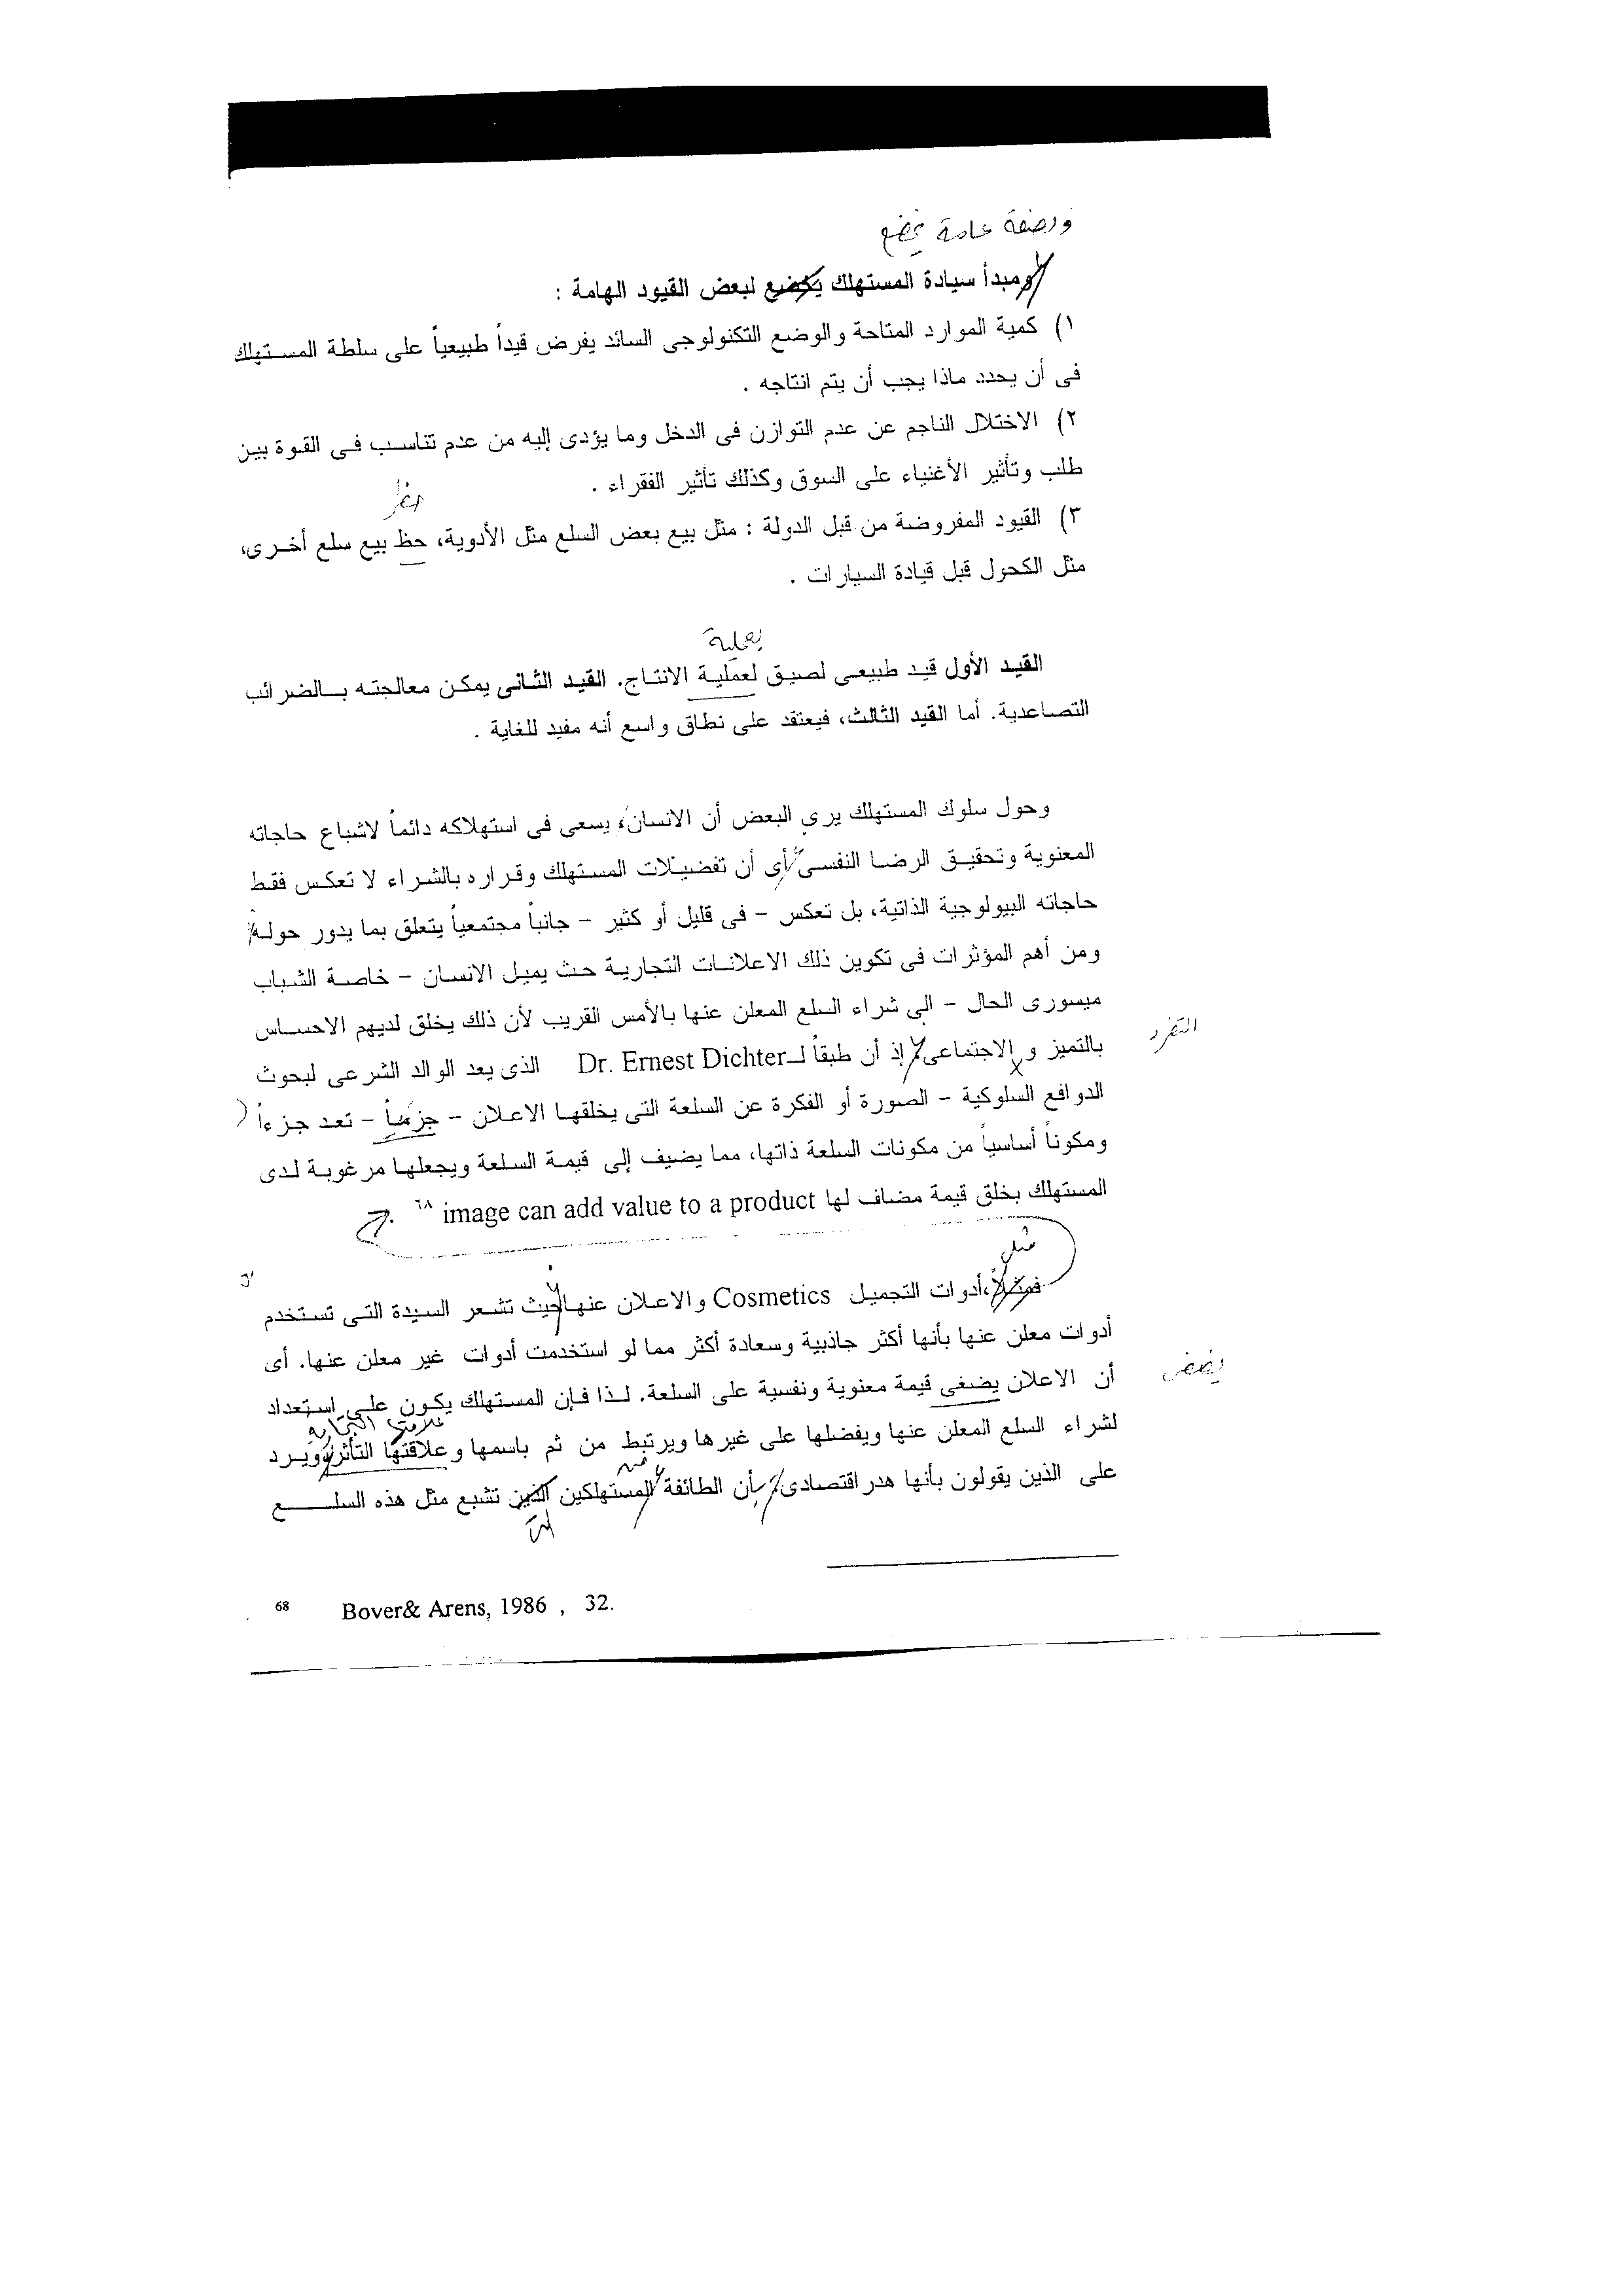 وبصفة عامة يخضع
ومبدأ سيادة المستهلك يخضع لبعض القيود الهامة :
١) كمية الموارد المتاحة والوضع التكنولوجى السائد يفرض قيداً طبيعياً على سلطة المستهلك
فى أن يحدد ماذا يجب أن يتم انتاجه .
٢) الاختلال الناجم عن عدم التوازن فى الدخل وما يؤدى إليه من عدم تناسب فى القوة بين
طلب وتأثير الأغنياء على السوق وكذلك تأثير الفقراء .
٣) القيود المفروضة من قبل الدولة : مثل بيع بعض السلع مثل الأدوية، حظ بيع سلع أخرى،
مثل الكحول قبل قيادة السيارات .
بعملية
القيد الأول قيد طبيعى لصيق لعملية الانتاج. القيد الثانى يمكن معالجته بالضرائب
التصاعدية. أما القيد الثالث، فيعتقد على نطاق واسع أنه مفيد للغاية .
وحول سلوك المستهلك يري البعض أن الانسان، يسعى فى استهلاكه دائماً لاشباع حاجاته
المعنوية وتحقيق الرضا النفسى أى أن تفضيلات المستهلك وقراره بالشراء لا تعكس فقط
حاجاته البيولوجية الذاتية، بل تعكس - فى قليل أو كثير - جانباً مجتمعياً يتعلق بما يدور حوله
ومن أهم المؤثرات فى تكوين ذلك الاعلانات التجارية حث يميل الانسان - خاصة الشباب
ميسورى الحال - الى شراء السلع المعلن عنها بالأمس القريب لأن ذلك يخلق لديهم الاحساس
التفرد
بالتميز و الاجتماعى إذ أن طبقاً لـDr. Ernest Dichter الذى يعد الوالد الشرعى لبحوث
الدوافع السلوكية - الصورة أو الفكرة عن السلعة التى يخلقها الاعلان - جزءاً - تعد جزءاً
ومكوناً أساسياً من مكونات السلعة ذاتها، مما يضيف إلى قيمة السلعة ويجعلها مرغوبة لدى
المستهلك بخلق قيمة مضاف لها image can add value to a product ٦٨ .
مثل
فمثلاً، أدوات التجميل Cosmetics والاعلان عنها حيث تشعر السيدة التى تستخدم
أدوات معلن عنها بأنها أكثر جاذبية وسعادة أكثر مما لو استخدمت أدوات غير معلن عنها. أى
أن الاعلان يضغى قيمة معنوية ونفسية على السلعة. لذا فإن المستهلك يكون على استعداد
علامتها التجارية
لشراء السلع المعلن عنها ويفضلها على غيرها ويرتبط من ثم باسمها وعلاقتها التأثر ويرد
من
على الذين يقولون بأنها هدر اقتصادى بأن الطائفة المستهلكين الذين تشبع مثل هذه السلع
التى
68 Bover& Arens, 1986 , 32.